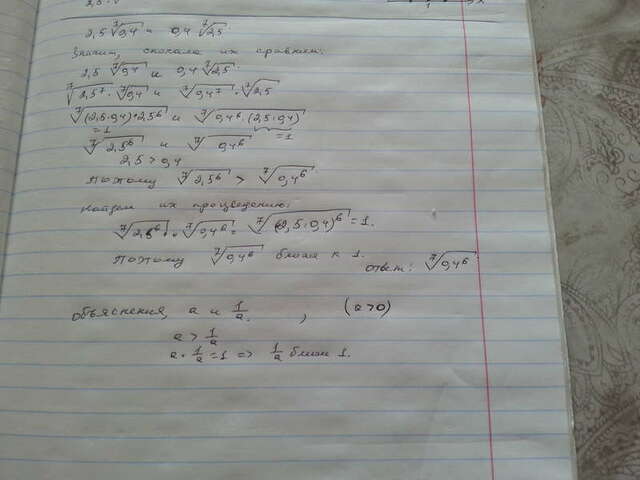 2,5 ⁷√0,4 и 0,4 ⁷√2,5
Значит, сначала их сравним:
2,5 ⁷√0,4 и 0,4 ⁷√2,5
⁷√2,5⁷ · ⁷√0,4 и ⁷√0,4⁷ · ⁷√2,5
⁷√(2,5·0,4)·2,5⁶ и ⁷√0,4⁶·(2,5·0,4)
=1 =1
⁷√2,5⁶ и ⁷√0,4⁶
2,5 > 0,4
Поэтому ⁷√2,5⁶ > ⁷√0,4⁶
Найдем их процведению:
⁷√2,5⁶ · ⁷√0,4⁶ = ⁷√(2,5·0,4)⁶ = 1.
Поэтому ⁷√0,4⁶ ближе к 1.
ответ: ⁷√0,4⁶
объяснения, a и 1/a. , (a>0)
a > 1/a
a · 1/a = 1 => 1/a ближе 1.